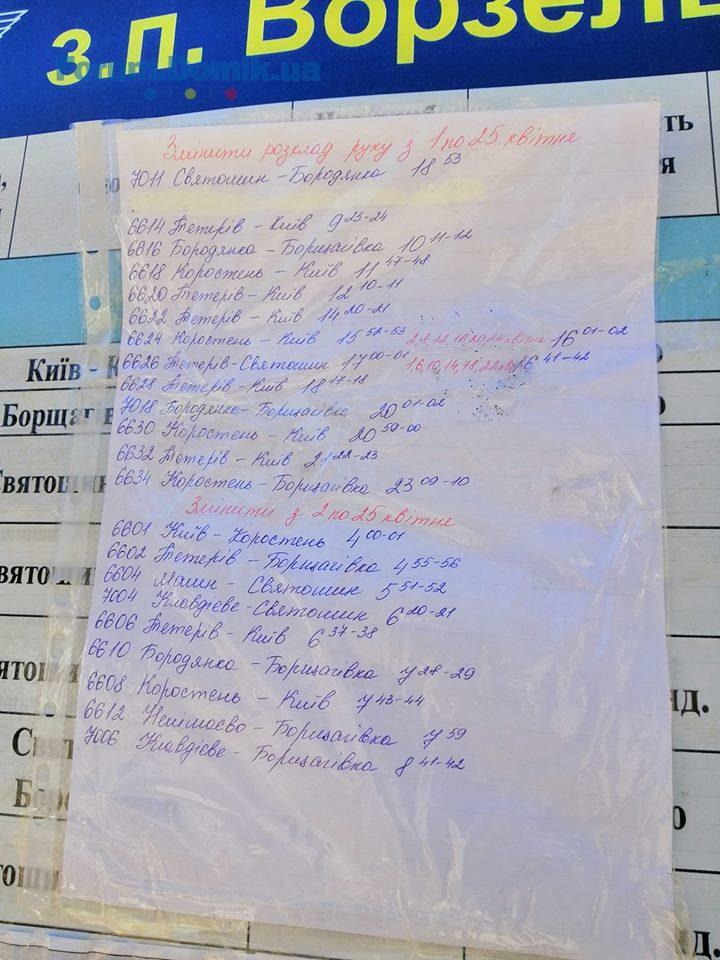 з.п. Ворзель
Forum.Domik.ua
Змінити розклад руху з 1 по 25 квітне
7011 Святошин - Бородянка 18 53
6614 Тетерів - Київ 9 23-24
6816 Бородянка - Борщагівка 10 11-12
6618 Коростень - Київ 11 47-48
6620 Тетерів - Київ 12 10-11
6622 Тетерів - Київ 14 20-21
6624 Коростень - Київ 15 52-53 16 01-02
6626 Тетерів-Святошин 17 00-01 1,6,10,14,18,22 16 41-42
6628 Тетерів-Київ 18 17-18
7018 Бородянка-Борщагівка 20 01-02
6630 Коростень - Київ 20 59-00
6632 Тетерів - Київ 21 22-23
6634 Коростень-Борщагівка 23 09-10
Змінити з 2 по 25 квітне
6601 Київ-Коростень 4 00-01
6602 Тетерів - Борщагівка 4 55-56
6604 Малин - Святошин 5 51-52
7004 Клавдієве-Святошин 6 20-21
6606 Тетерів - Київ 6 37-38
6610 Бородянка - Борщагівка 7 28-29
6608 Коростень - Київ 7 43-44
6612 - Борщагівка 7 59
7006 Клавдієве - Борщагівка 8 41-42
Київ - К
Борщаг
Святошин